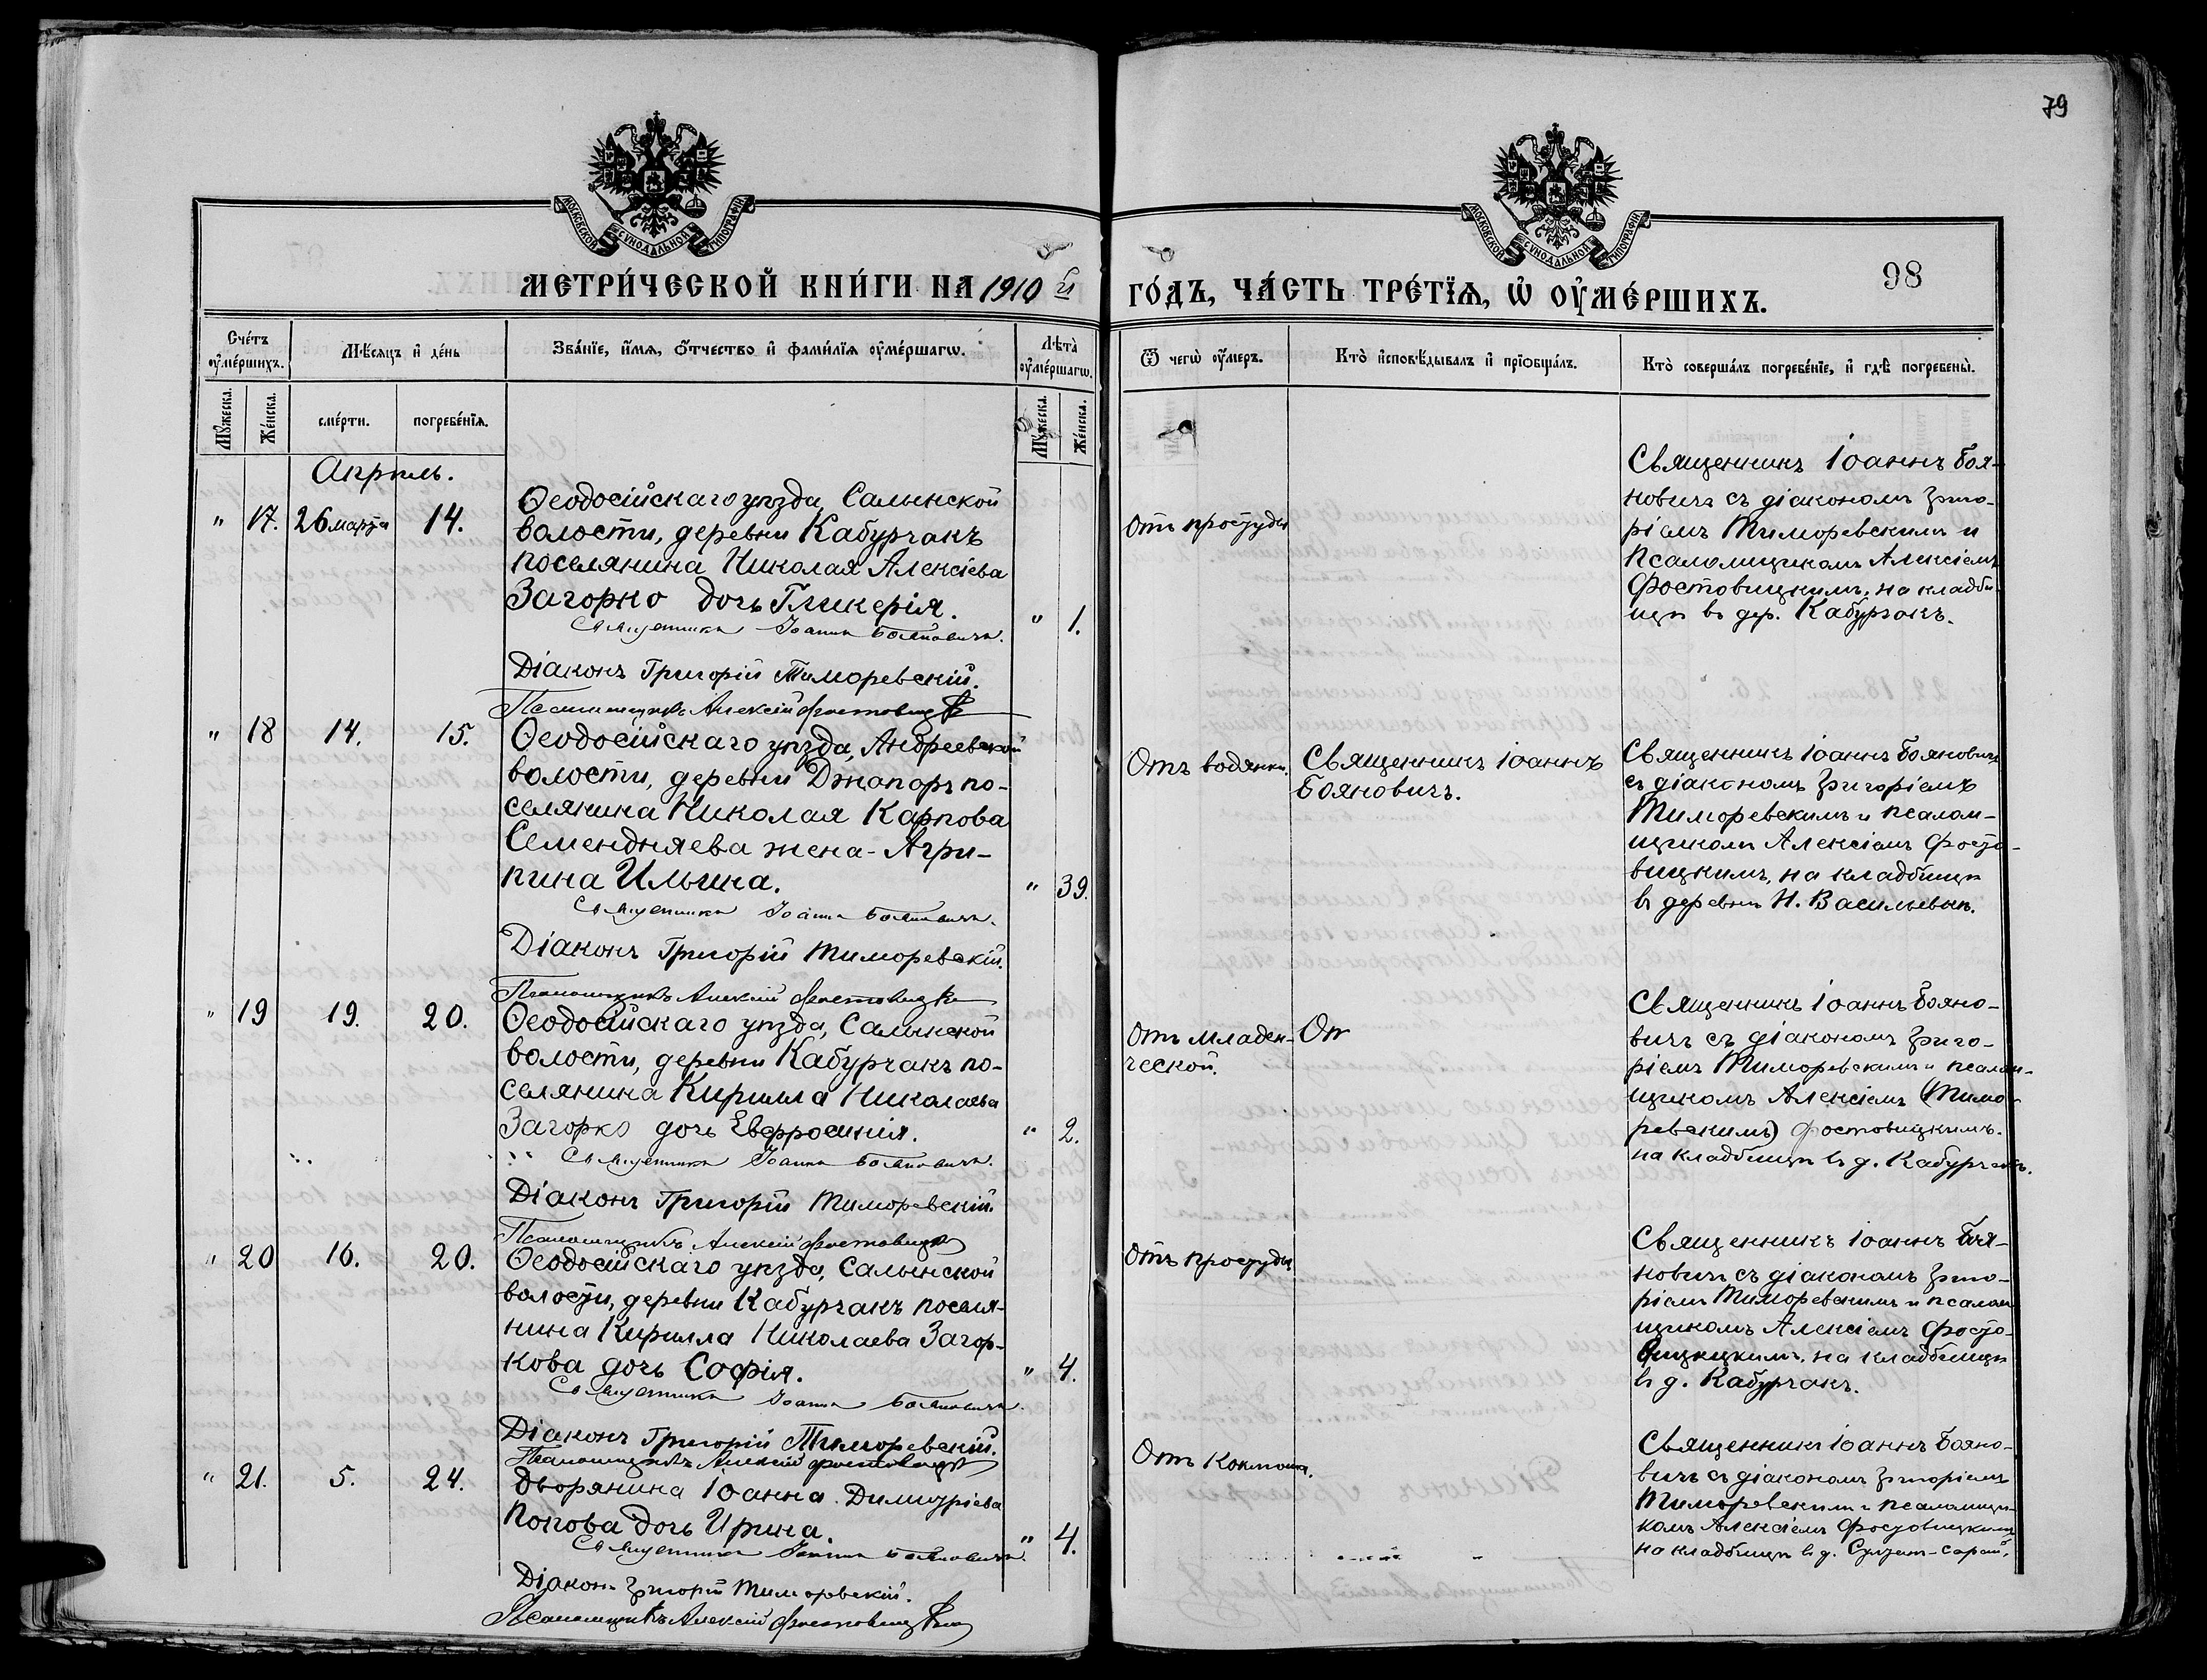 79
МОСКОВСКОЙ СУНОДАЛЬНОЙ ТИПОГРАФІИ
МОСКОВСКОЙ СУНОДАЛЬНОЙ ТИПОГРАФІИ
МЕТРИ́ЧЕСКОЙ КНИ́ГИ НА 1910 й
ГО́ДЪ, ЧА́СТЬ ТРЕ́ТІѦ, Ѡ ОУ҆МЕ́РШИХЪ.
98
Сче́тъ оу҆ме́ршихъ.
Мѣ́сѧцъ и҆ де́нь
Зва́нїе, и҆́мѧ, ѻ҆́тчество и҆ фами́лїѧ оу҆ме́ршагѡ.
Лѣ́та оу҆ме́ршагѡ.
Ѿ чегѡ̀ оу҆́меръ.
Кто̀ и҆сповѣ́дывалъ и҆ прїѡбща́лъ.
Кто̀ соверша́лъ погребе́нїе, и҆ гдѣ̀ погребены̀.
Мꙋ́жеска.
Же́нска.
сме́рти.
погребе́нїѧ.
Мꙋ́жеска.
Же́нска.
Апрѣль.
" 17. 26 марта 14.
Ѳеодосійскаго уѣзда, Салынской
волости, деревни Кабурчакъ
поселянина Николая Алексіева
Загорко дочь Гликерія.
" 1.
Священникъ Іоаннъ Бояновичъ.
Діаконъ Григорій Тиморевскій.
Псаломщикъ Алексій Фостовицкій
Отъ простуды
Священникъ Іоаннъ Боя-
новичъ съ діакономъ Григо-
ріемъ Тиморевскимъ и
псаломщикомъ Алексіемъ
Фостовицкимъ, на кладби-
щѣ въ дер. Кабурчакъ.
" 18 14. 15.
Ѳеодосійскаго уѣзда, Андреевской
волости, деревни Джапаръ по-
селянина Николая Карпова
Семендяева жена - Агри-
пина Ильина.
" 39.
Священникъ Іоаннъ Бояновичъ.
Діаконъ Григорій Тиморевскій.
Псаломщикъ Алексій Фостовицкій
Отъ водянки.
Священникъ Іоаннъ
Бояновичъ.
Священникъ Іоаннъ Бояновичъ
съ діакономъ Григоріемъ
Тиморевскимъ и псалом-
щикомъ Алексіемъ Фосто-
вицкимъ, на кладбищѣ
въ деревнѣ Н. Васильевкѣ.
" 19 19. 20.
Ѳеодосійскаго уѣзда, Салынской
волости, деревни Кабурчакъ по-
селянина Кирилла Николаева
Загорко дочь Евфросинія.
" 2.
Священникъ Іоаннъ Бояновичъ.
Діаконъ Григорій Тиморевскій.
Псаломщикъ Алексій Фостовицкій
Отъ младен-
ческой.
От
Священникъ Іоаннъ Бояно-
вичъ съ діакономъ Григо-
ріемъ Тиморевскимъ и псалом-
щикомъ Алексіемъ (Тимо-
ревскимъ) Фостовицкимъ.
на кладбищѣ въ д. Кабурчакъ.
" 20 16. 20.
Ѳеодосійскаго уѣзда, Салынской
волости, деревни Кабурчакъ поселя-
нина Кирилла Николаева Загор-
кова дочь Софія.
" 4.
Священникъ Іоаннъ Бояновичъ.
Діаконъ Григорій Тиморевскій.
Псаломщикъ Алексій Фостовицкій
Отъ простуды.
Священникъ Іоаннъ Боя-
новичъ съ діакономъ Григо-
ріемъ Тиморевскимъ и псалом-
щикомъ Алексіемъ Фосто-
вицкицкимъ. на кладбищѣ
въ д. Кабурчакъ.
" 21. 5. 24.
Дворянина Іоанна Димитріева
Попова дочь Ирина.
" 4.
Священникъ Іоаннъ Бояновичъ
Діаконъ Григорій Тиморевскій.
Псаломщикъ Алексій Фостовицкій
Отъ коклюша.
Священникъ Іоаннъ Бояно-
вичъ съ діакономъ Григоріемъ
Тиморевскимъ и псаломщи-
комъ Алексіемъ Фостовицкимъ
на кладбищѣ въ д. Султан-Сарай.